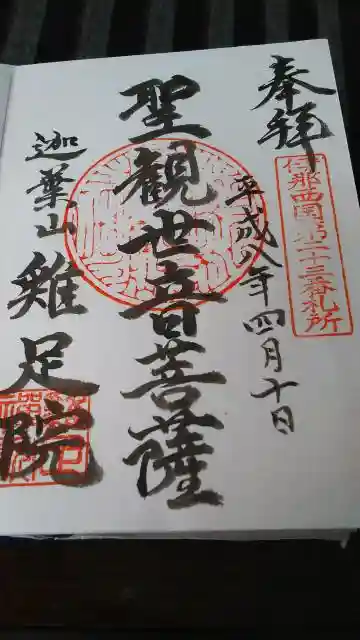 奉拝
伊那西国第二十三番札所
平成八年四月十日
聖観世音菩薩
迦葉山
雞足院